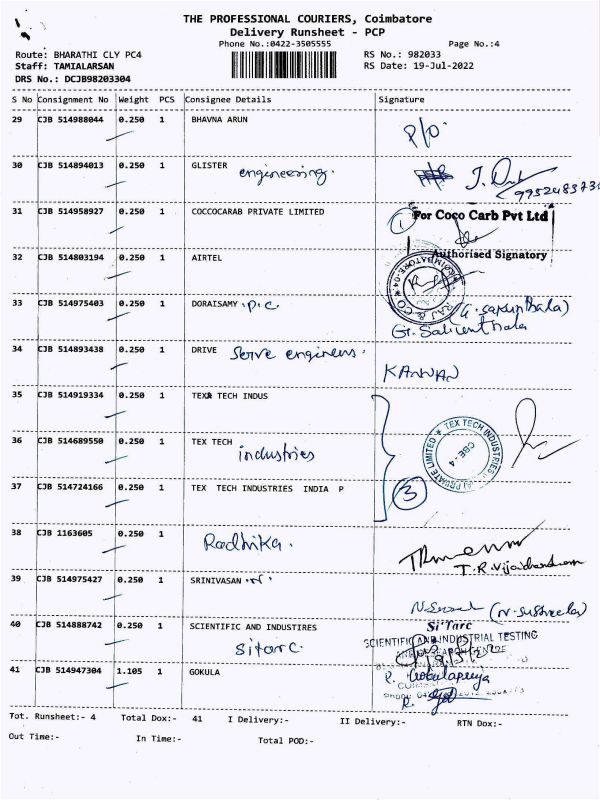 THE PROFESSIONAL COURIERS, Coimbatore
Delivery Runsheet - PCP
Phone No.:0422-3505555
Page No.:4
Route: BHARATHI CLY PC4
RS No.: 982033
Staff: TAMIALARSAN
RS Date: 19-Jul-2022
DRS No.: DCJB98203304
S No Consignment No Weight PCS Consignee Details Signature
29 CJB 514988044 0.250 1 BHAVNA ARUN
P/O
30 CJB 514894013 0.250 1 GLISTER
engineering.
31 CJB 514958927 0.250 1 COCCOCARAB PRIVATE LIMITED
1 For Coco Carb Pvt Ltd
32 CJB 514803194 0.250 1 AIRTEL
Authorised Signatory
33 CJB 514975403 0.250 1 DORAISAMY .p.c.
34 CJB 514893438 0.250 1 DRIVE serve engineers.
KANNAN
35 CJB 514919334 0.250 1 TEX TECH INDUS
36 CJB 514689550 0.250 1 TEX TECH
industries
TEX TECH INDUSTRIES PRIVATE LIMITED
CBE - 4
37 CJB 514724166 0.250 1 TEX TECH INDUSTRIES INDIA P
3
38 CJB 1163605 0.250 1 Radhika.
T.R.Vijaichandran
39 CJB 514975427 0.250 1 SRINIVASAN .N.
(N. Susheela)
40 CJB 514888742 0.250 1 SCIENTIFIC AND INDUSTIRES
sitarc.
Si'Tarc
SCIENTIFIC AND INDUSTRIAL TESTING
41 CJB 514947304 1.105 1 GOKULA
Tot. Runsheet:- 4 Total Dox:- 41 I Delivery:- II Delivery:- RTN Dox:-
Out Time:- In Time:- Total POD:-